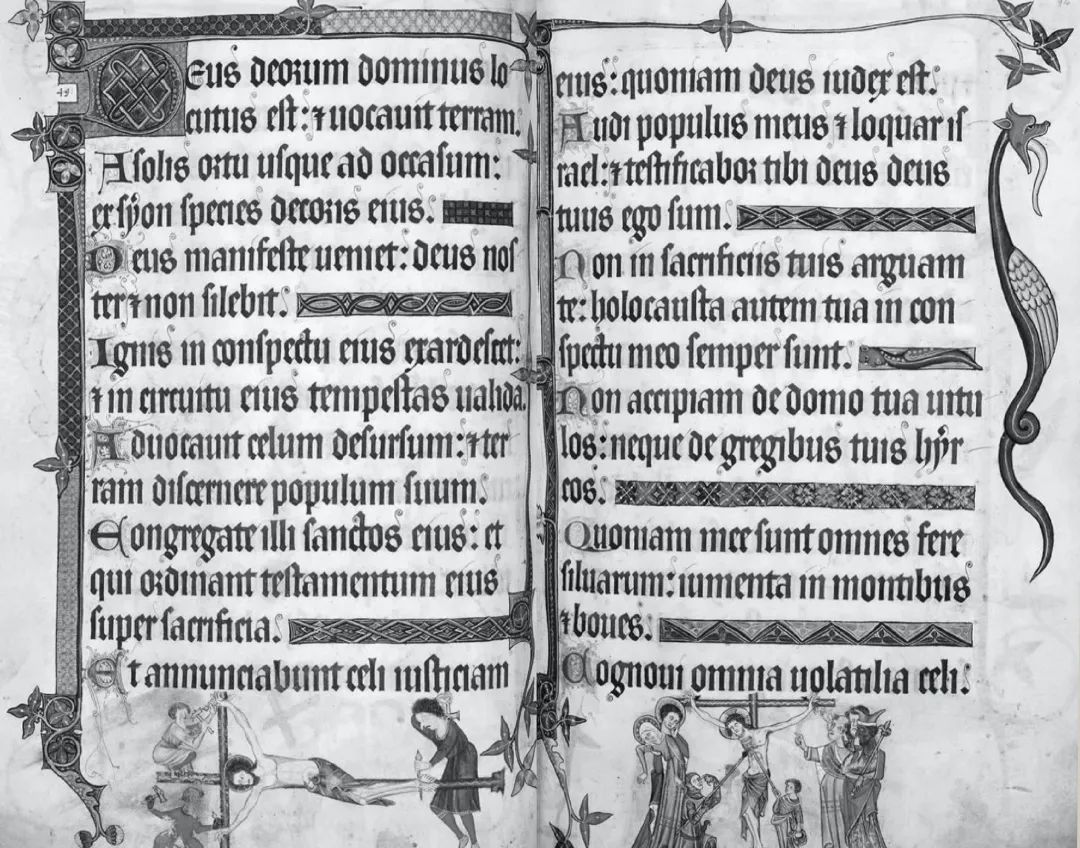 49
Deus deorum dominus lo
cutus est: ⁊ uocauit terram.
A solis ortu usque ad occasum:
ex syon species decoris eius.
Deus manifeste ueniet: deus nos
ter ⁊ non silebit.
Ignis in conspectu eius exardescet:
⁊ in circuitu eius tempestas ualida.
Aduocauit celum desursum: ⁊ ter
ram discernere populum suum.
Congregate illi sanctos eius: et
qui ordinant testamentum eius
super sacrificia.
Et annunciabunt celi iusticiam
94
eius: quoniam deus iudex est.
Audi populus meus ⁊ loquar is
rael: ⁊ testificabor tibi deus deus
tuus ego sum.
Non in sacrificiis tuis arguam
te: holocausta autem tua in con
spectu meo semper sunt.
Non accipiam de domo tua uitu
los: neque de gregibus tuis hyr
cos.
Quoniam mee sunt omnes fere
siluarum: iumenta in montibus
⁊ boues.
Cognoui omnia uolatilia celi: